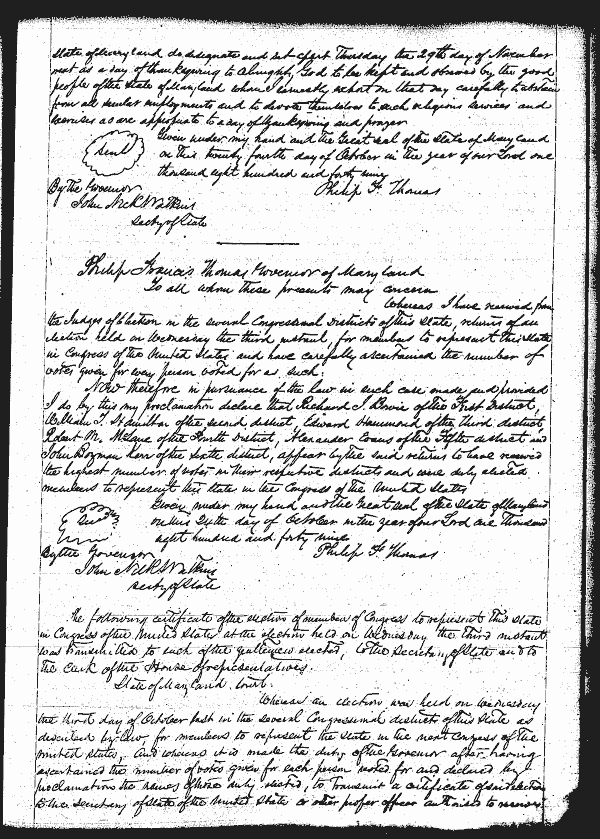 State of Maryland, do designate and set apart Thursday the 29th day of November
next as a day of thanksgiving to Almighty God to be kept and observed by the good
people of the State of Maryland whom I earnestly exhort on that day carefully to abstain
from all secular employments and to devote themselves to such religious services and
exercises as are appropriate to a day of thanksgiving and prayer
Given under my hand and the Great seal of the State of Maryland
Seal
on this twenty fourth day of October in the year of our Lord one
thousand eight hundred and forty nine
By the Governor
Philip F. Thomas
John Nick Watkins
Secty of State
Philip Francis Thomas Governor of Maryland
To all whom these presents may concern
Whereas I have received from
the Judges of Election in the several Congressional Districts of this State, returns of an
election held on Wednesday the third instant, for members to represent this State
in Congress of the United States and have carefully ascertained the number of
votes given for every person voted for as such:
Now therefore in pursuance of the law in such case made and provided
I do by this my proclamation declare that Richard I. Bowie of the First District,
William T. Hamilton of the second district, Edward Hammond of the third district,
Robert M. McLane of the Fourth District, Alexander Evans of the Fifth district and
John Bozman Kerr of the sixth district, appear by the said returns to have received
the highest number of votes in their respective districts and were duly elected
members to represent this State in the Congress of the United States
Given under my hand and the Great seal of the State of Maryland
on this 24th day of October in the year of our Lord one thousand
eight hundred and forty nine
By the Governor
Philip F. Thomas
John Nick Watkins
Secty of State
The following certificate of the election of members of Congress to represent this State
in Congress of the United States at the election held on Wednesday the third instant
was transmitted to each of the gentlemen elected, to the Secretary of State and to
the Clerk of the House of representatives.
State of Maryland to wit.
Whereas an election was held on Wednesday
the third day of October last in the several Congressional districts of this State as
described by law, for members to represent the State in the next Congress of the
United States, And whereas it is made the duty of the Governor after having
ascertained the number of votes given for each person voted for and declared by
proclamation the names of those duly elected, to transmit a certificate of such election
to the Secretary of State of the United State or other proper officer authorised to receive